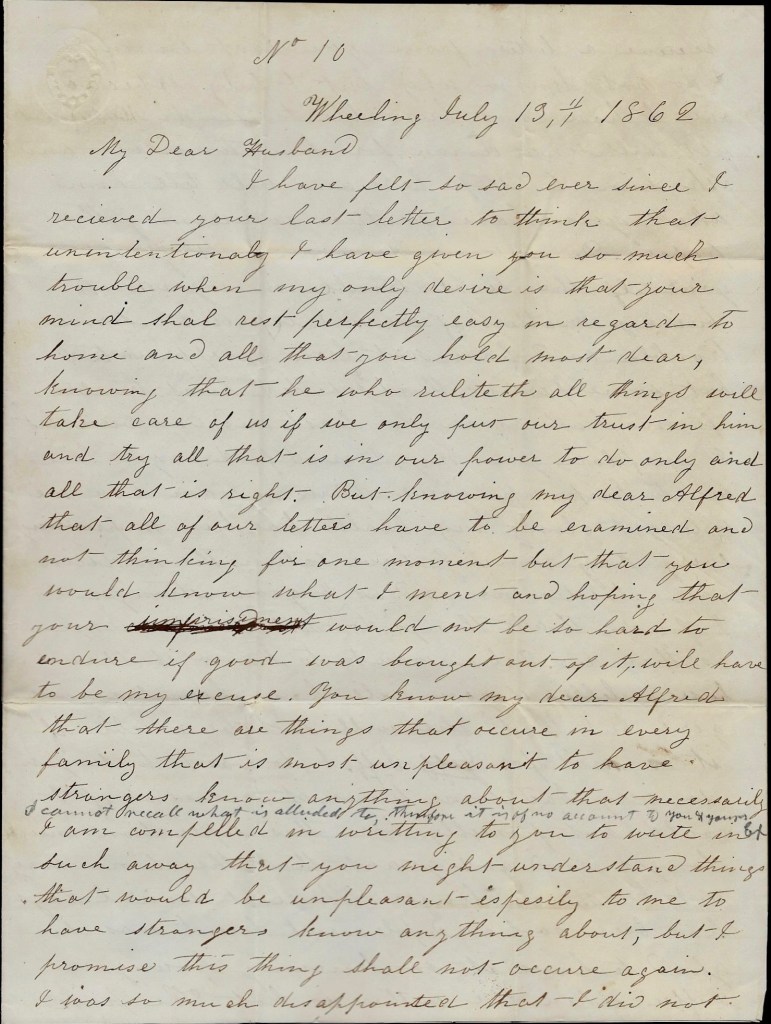 No 10
Wheeling July 13, 11 1862
My Dear Husband
I have felt so sad ever since I
recieved your last letter to think that
unintentionaly I have given you so much
trouble when my only desire is that your
mind shal rest perfectly easy in regard to
home and all that you hold most dear,
knowing that he who ruliteth all things will
take care of us if we only put our trust in him
and try all that is in our power to do only and
all that is right. But knowing my dear Alfred
that all of our letters have to be examined and
not thinking for one moment but that you
would know what I ment and hoping that
your imprisonment would not be so hard to
endure if good was brought out of it, will have
to be my excuse. You know my dear Alfred
that there are things that occure in every
family that is most unpleasant to have
strangers know anything about that necessarily
I cannot recall what is alluded to, therefore it is of no account to you & yours
I am complled in writting to you to write in
such away that you might understand things
that would be unpleasant espesily to me to
have strangers know anything about, but I
promise this thing shall not occure again.
I was so much disappointed that I did not